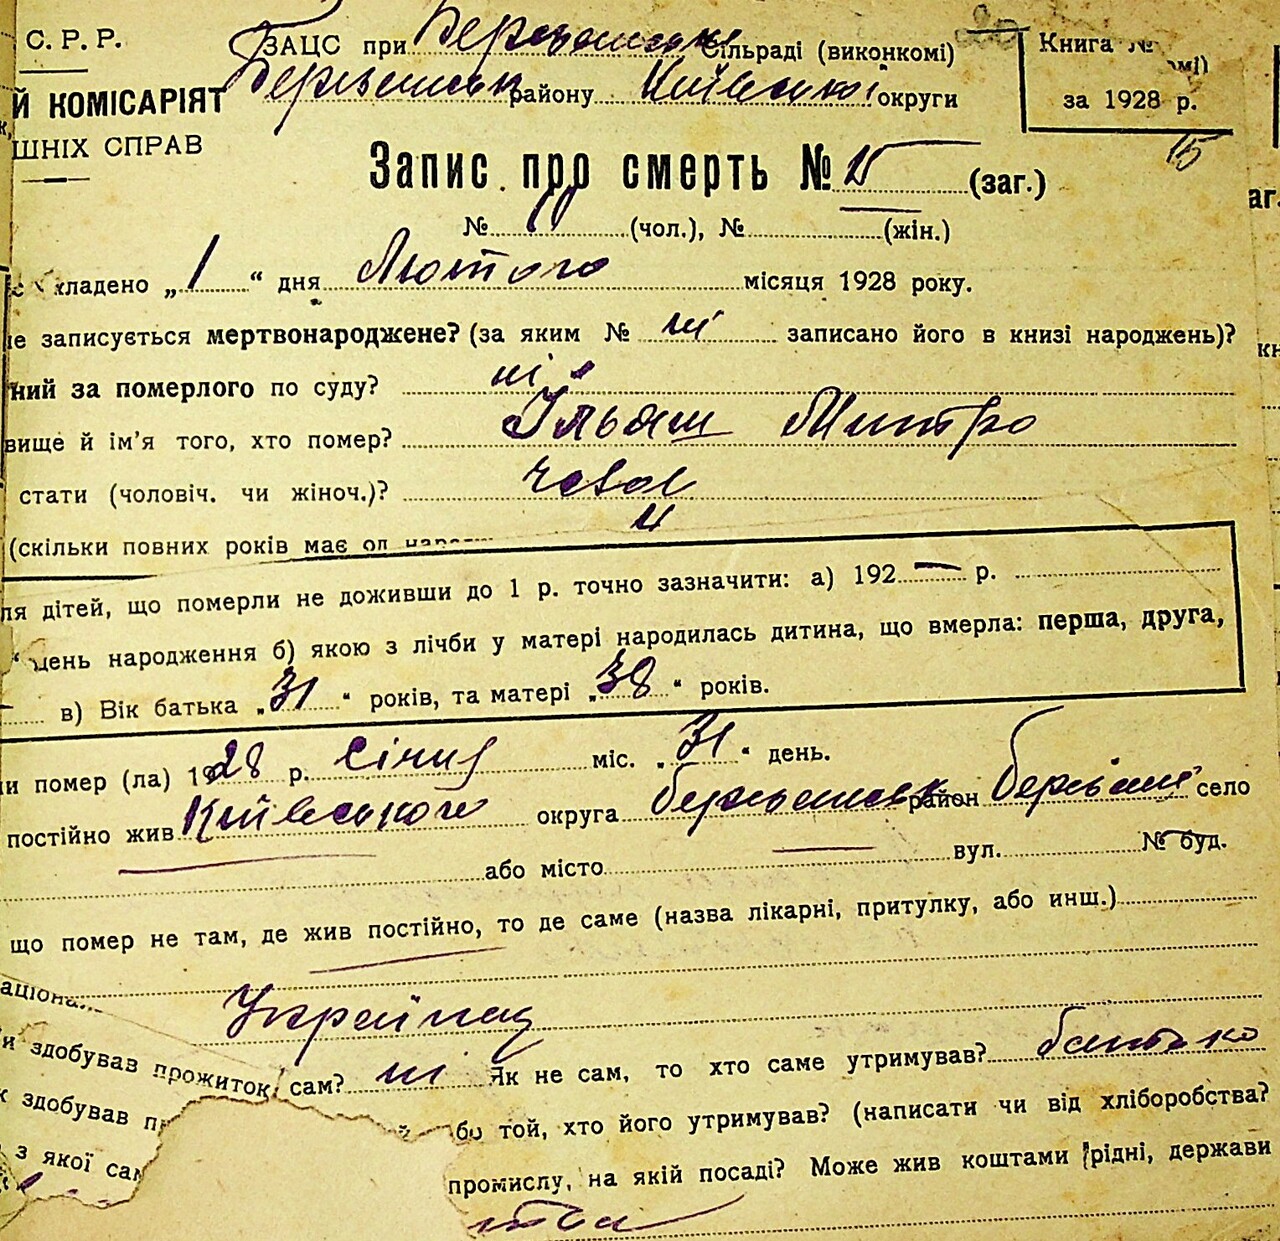 С. Р. Р.
ЗАЦС при сільраді (виконкомі)
Книга №
омі)
Й КОМІСАРІЯТ
району Київської округи
за 1928 р.
ШНІХ СПРАВ
15
Запис про смерть № 15 (заг.)
№ 10 (чол.), № (жін.)
кладено „1“ дня Лютого місяця 1928 року.
е записується мертвонароджене? (за яким № ні записано його в книзі народжень)?
ний за померлого по суду? ні
вище й ім'я того, хто помер? Ільяш Митро
стати (чоловіч. чи жіноч.)? човол
(скільки повних років має од 4
ля дітей, що померли не доживши до 1 р. точно зазначити: а) 192— р.
день народження б) якою з лічби у матері народилась дитина, що вмерла: перша, друга,
в) Вік батька „31“ років, та матері „38“ років.
и помер (ла) 1928 р. Січня міс. „31“ день.
постійно жив Київського округа район село
або місто вул. № буд.
що помер не там, де жив постійно, то де саме (назва лікарні, притулку, або инш.)
аціона
Українец
и здобував прожиток сам? ні Як не сам, то хто саме утримував? батько
здобував п бо той, хто його утримував? (написати чи від хліборобства?
з якої сам промислу, на якій посаді? Може жив коштами рідні, держави
тва